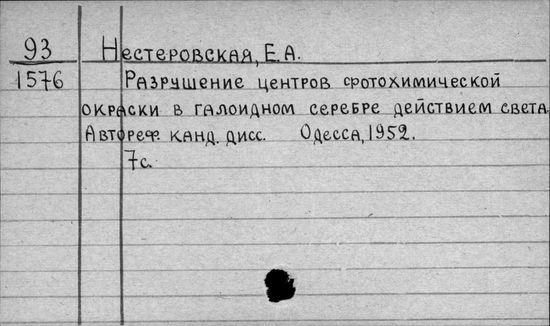 93 Нестеровская, Е.А.
1576 Разрушение центров фотохимической
окраски в галоидном серебре действием света
Автореф. канд. дисс. Одесса, 1952.
7с.